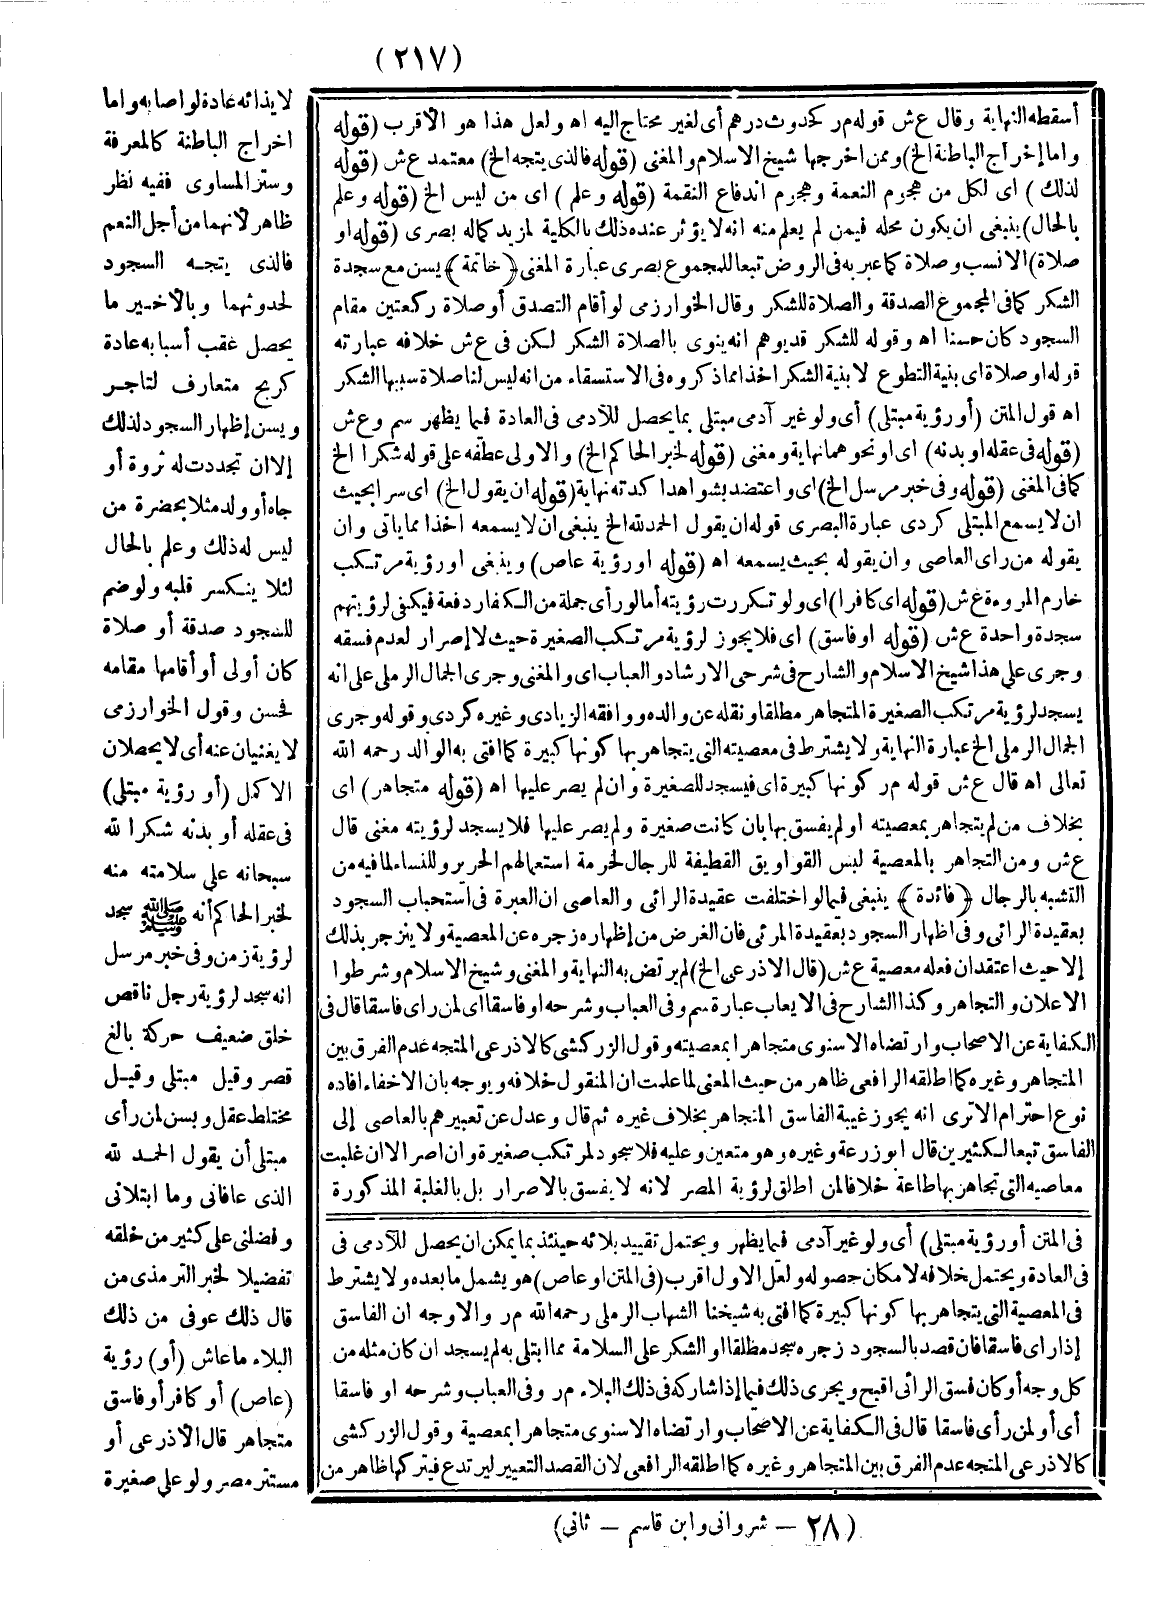 (٢١٧)
لا يذائه عادة لو اصابه واما
اخراج الباطنة كالمعرفة
وستر المساوى ففيه نظر
ظاهر لأنهما من أجل النعم
فالذى يتجه السجود
لحدوثهما وبالأخير ما
يحصل عقب أسبابه عادة
كربح متعارف لتاجر
ويسن إظهار السجود لذلك
إلا ان تجددت له ثروة أو
جاه أو ولد مثلا بحضرة من
ليس له ذلك وعلم بالحال
لئلا ينكسر قلبه ولو ضم
للسجود صدقة أو صلاة
كان أولى أو أقامها مقامه
فحسن وقول الخوارزمى
لا يغنيان عنه أى لا يحصلان
الاكمل (أو رؤية مبتلى)
فى عقله أو بدنه شكرا لله
سبحانه على سلامته منه
لخبر الحاكم أنه ﷺ سجد
لرؤية زمن وفى خبر مرسل
انه سجد لرؤية رجل ناقص
خلق ضعيف حركة بالغ
قصر وقيل مبتلى وقيل
مختلط عقل ويسن لمن رأى
مبتلى أن يقول الحمد لله
الذى عافانى وما ابتلانى
وفضلنى على كثير من خلقه
تفضيلا لخبر الترمذى من
قال ذلك عوفى من ذلك
البلاء ما عاش (أو) رؤية
(عاص) أو كافر أو فاسق
متجاهر قال الأذرعى أو
مستتر مصر ولو على صغيرة
أسقطه النهاية وقال ع ش قوله م ر كحدوث درهم أى لغير محتاج اليه اه ولعل هذا هو الأقرب (قوله
واما إخراج الباطنة الخ) وممن اخرجها شيخ الاسلام والمغنى (قوله فالذى يتجه الخ) معتمد ع ش (قوله
لذلك) اى لكل من هجوم النعمة وهجوم اندفاع النقمة (قوله وعلم) اى من ليس الخ (قوله وعلم
بالحال) ينبغى ان يكون محله فيمن لم يعلم منه انه لا يؤثر عنده ذلك بالكلية لمزيد كماله بصرى (قوله او
صلاة) الانسب وصلاة كما عبر به فى الروض تبعا للمجموع بصرى عبارة المغنى ﴿خاتمة﴾ يسن مع سجدة
الشكر كما فى المجموع الصدقة والصلاة للشكر وقال الخوارزمى لو أقام التصدق أو صلاة ركعتين مقام
السجود كان حسنا اه وقوله للشكر قد يوهم انه ينوى بالصلاة الشكر لكن فى ع ش خلافه عبارته
قوله او صلاة اى بنية التطوع لا بنية الشكر اخذا مما ذكروه فى الاستسقاء من انه ليس لنا صلاة سببها الشكر
اه قول المتن (أو رؤية مبتلى) أى ولو غير آدمى مبتلى بما يحصل للآدمى فى العادة فيما يظهر سم وع ش
(قوله فى عقله او بدنه) اى او نحوهما نهاية ومغنى (قوله لخبر الحاكم الخ) والاولى عطفه على قوله شكرا الخ
كما فى المغنى (قوله وفى خبر مرسل الخ) اى واعتضد بشواهد اكدته نهاية (قوله ان يقول الخ) اى سرا بحيث
ان لا يسمع المبتلى كردى عبارة البصرى قوله ان يقول الحمد لله الخ ينبغى ان لا يسمعه اخذا مما يأتى وان
يقوله من راى العاصى وان يقوله بحيث يسمعه اه (قوله او رؤية عاص) وينبغى او رؤية مرتكب
خارم المروءة ع ش (قوله اى كافرا) اى ولو تكررت رؤيته أما لو رأى جملة من الكفار دفعة فيكفى لرؤيتهم
سجدة واحدة ع ش (قوله او فاسق) اى فلا يجوز لرؤية مرتكب الصغيرة حيث لا إصرار لعدم فسقه
وجرى على هذا شيخ الاسلام والشارح فى شرحى الارشاد والعباب اى والمغنى وجرى الجمال الرملى على انه
يسجد لرؤية مرتكب الصغيرة المتجاهر مطلقا ونقله عن والده ووافقه الزيادى وغيره كردى وقوله وجرى
الجمال الرملى الخ عبارة النهاية ولا يشترط فى معصيته التى يتجاهر بها كونها كبيرة كما افتى به الوالد رحمه الله
تعالى اه قال ع ش قوله م ر كونها كبيرة اى فيسجد للصغيرة وان لم يصر عليها اه (قوله متجاهر) اى
بخلاف من لم يتجاهر بمعصيته او لم يفسق بها بان كانت صغيرة ولم يصر عليها فلا يسجد لرؤيته مغنى قال
ع ش ومن التجاهر بالمعصية لبس القواويق القطيفة للرجال لحرمة استعمالهم الحرير وللنساء لما فيه من
التشبه بالرجال ﴿فائدة﴾ ينبغى فيما لو اختلفت عقيدة الرائى والعاصى ان العبرة فى استحباب السجود
بعقيدة الرائى وفى اظهار السجود بعقيدة المرئى فان الغرض من إظهاره زجره عن المعصية ولا ينزجر بذلك
إلا حيث اعتقد ان فعله معصية ع ش (قال الاذرعى الخ) لم يرتض به النهاية والمغنى وشيخ الاسلام وشرطوا
الاعلان والتجاهر وكذا الشارح فى الايعاب عبارة سم وفى العباب وشرحه او فاسقا اى لمن راى فاسقا قال فى
الكفاية عن الاصحاب وارتضاه الاسنوى متجاهرا بمعصيته وقول الزركشى كالاذرعى المتجه عدم الفرق بين
المتجاهر وغيره كما اطلقه الرافعى ظاهر من حيث المعنى لما علمت ان المنقول خلافه ويوجه بان الاخفاء افاده
نوع احترام الا ترى انه يجوز غيبة الفاسق المتجاهر بخلاف غيره ثم قال وعدل عن تعبيرهم بالعاصى إلى
الفاسق تبعا لكثيرين قال ابو زرعة وغيره وهو متعين وعليه فلا سجود لمرتكب صغيرة وان اصر الا ان غلبت
معاصيه التى تجاهر بها طاعة خلافا لمن اطلق لرؤية المصر لانه لا يفسق بالاصرار بل بالغلبة المذكورة
فى المتن أو رؤية مبتلى) أى ولو غير آدمى فيما يظهر ويحتمل تقييد بلائه حينئذ بما يمكن ان يحصل للآدمى فى
فى العادة ويحتمل خلافه لا مكان حصوله ولعل الاول اقرب (فى المتن او عاص) هو يشمل ما بعده ولا يشترط
فى المعصية التى يتجاهر بها كونها كبيرة كما افتى به شيخنا الشهاب الرملى رحمه الله م ر والاوجه ان الفاسق
إذا راى فاسقا فان قصد بالسجود زجره سجد مطلقا او الشكر على السلامة مما ابتلى به لم يسجد ان كان مثله من
كل وجه أو كان فسق الرائى اقبح ويجرى ذلك فيما إذا شاركه فى ذلك البلاء م ر وفى العباب وشرحه او فاسقا
أى أو لمن رأى فاسقا قال فى الكفاية عن الاصحاب وارتضاه الاسنوى متجاهرا بمعصية وقول الزركشى
كالاذرعى المتجه عدم الفرق بين المتجاهر وغيره كما اطلقه الرافعى لان القصد التعيير ليرتدع فيتركها ظاهر من
(٢٨ — شروانى وابن قاسم — ثانى)